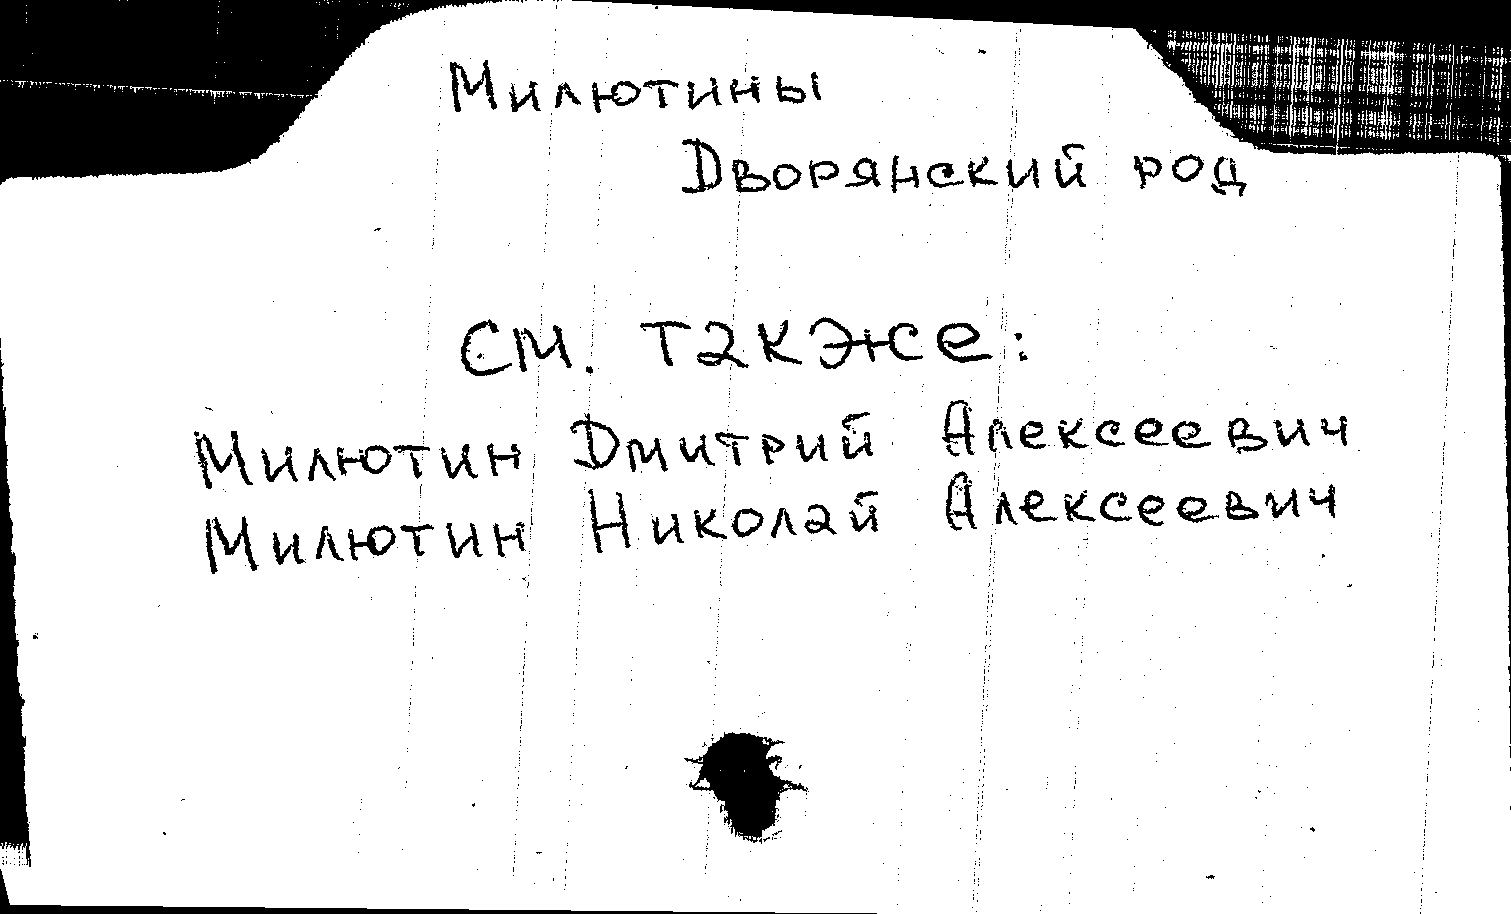 Милютины
Дворянский род
См. также:
Милютин Дмитрий Алексеевич
Милютин Николай Алексеевич